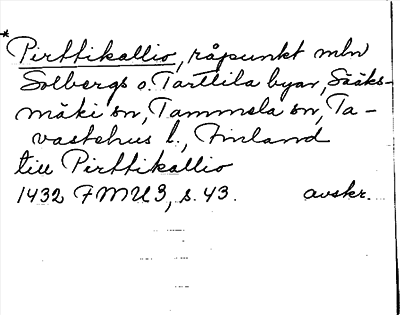 * Pirttikallio, råpunkt mln
Solbergs o. Tarttila byar, Sääks-
mäki sn, Tammela sn, Ta-
vastehus l., Finland
till Pirttikallio
1432 FMU 3, s. 43. avskr.